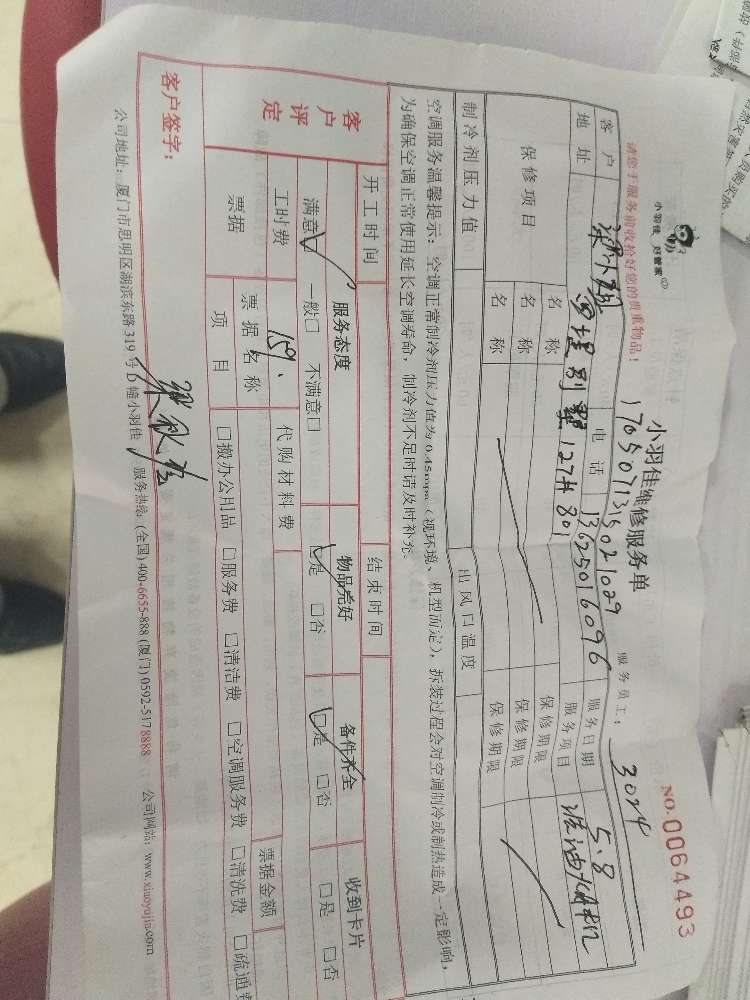 小羽佳 好管家
小羽佳维修服务单
NO.0064493
17050713502 1029
服务员工： 3024
请您于服务前收拾好您的贵重物品！
客户 电话 13625016096 服务日期 5.8
地址 别墅 127# 801 服务项目 洗油烟机
保修项目 名称 保修期限
名称 保修期限
名称 保修期限
制冷剂压力值 出风口温度
空调服务温馨提示：空调正常制冷剂压力值为0.45mpm（视环境、机型而定），拆装过程会对空调制冷或制热造成一定影响，
为确保空调正常使用延长空调寿命，制冷剂不足时请及时补充。
开工时间 结束时间
客户评定 服务态度 物品完好 备件齐全 收到卡片
满意☑ 一般□ 不满意□ ☑是 □否 ☑是 □否 □是 □否
工时费 159. 代购材料费 票据金额
票据 票据名称
项目 □搬办公用品 □服务费 □清洁费 □空调服务费 □清洗费 □疏通费
客户签字：
公司地址：厦门市思明区湖滨东路319号D幢小羽佳 服务热线：(全国)400-6655-888 (厦门)0592-5178888 公司网站：www.xiaoyujia.com